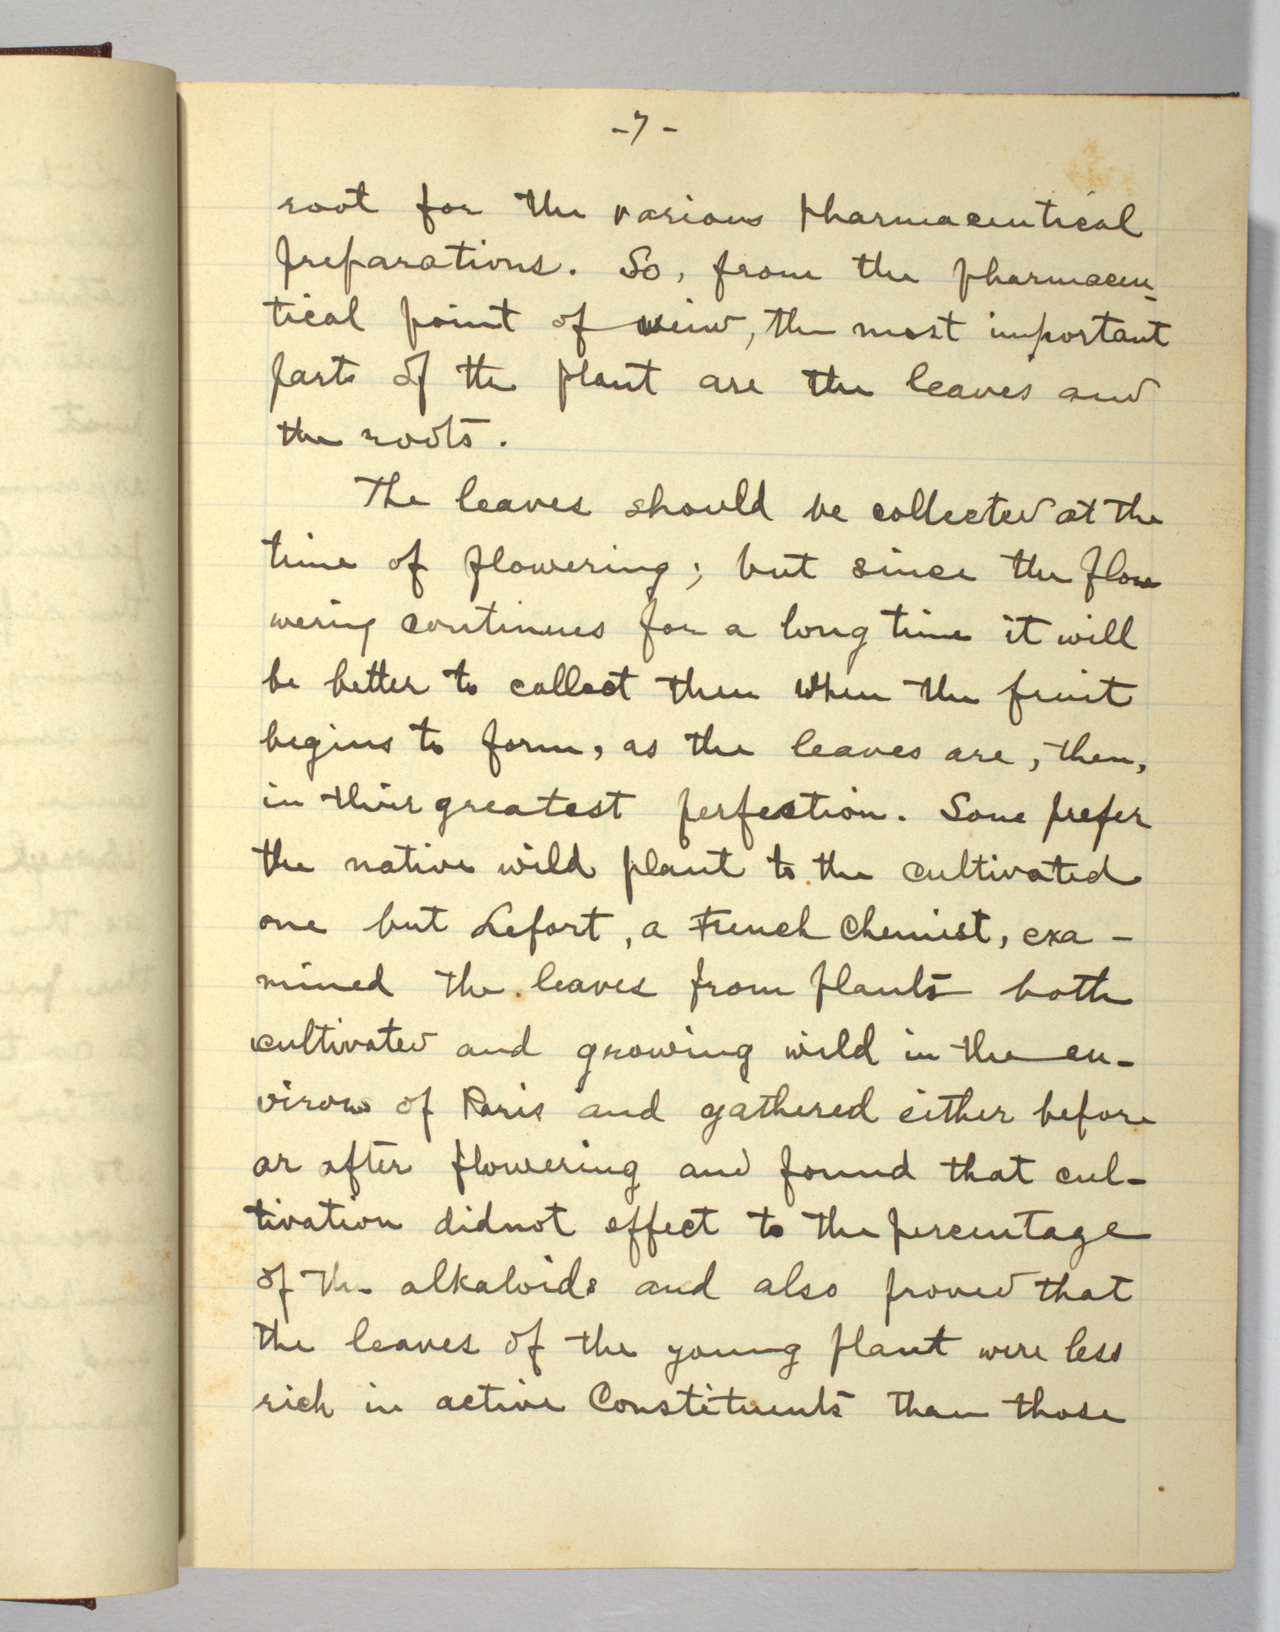 -7-
root for the various pharmaceutical
preparations. So, from the pharmaceu-
tical point of veiw, the most important
parts of the plant are the leaves and
the roots.
The leaves should be collected at the
time of flowering; but since the flow
wering continues for a long time it will
be better to collect them when the fruit
begins to form, as the leaves are, then,
in their greatest perfection. Some prefer
the native wild plant to the cultivated
one but Lefort, a French Chemist, exa-
mined the leaves from plants both
cultivated and growing wild in the en-
virons of Paris and gathered either before
or after flowering and found that cul-
tivation didnot effect to the percentage
of the alkaloids and also proved that
the leaves of the young plant were less
rich in active Constituents than those